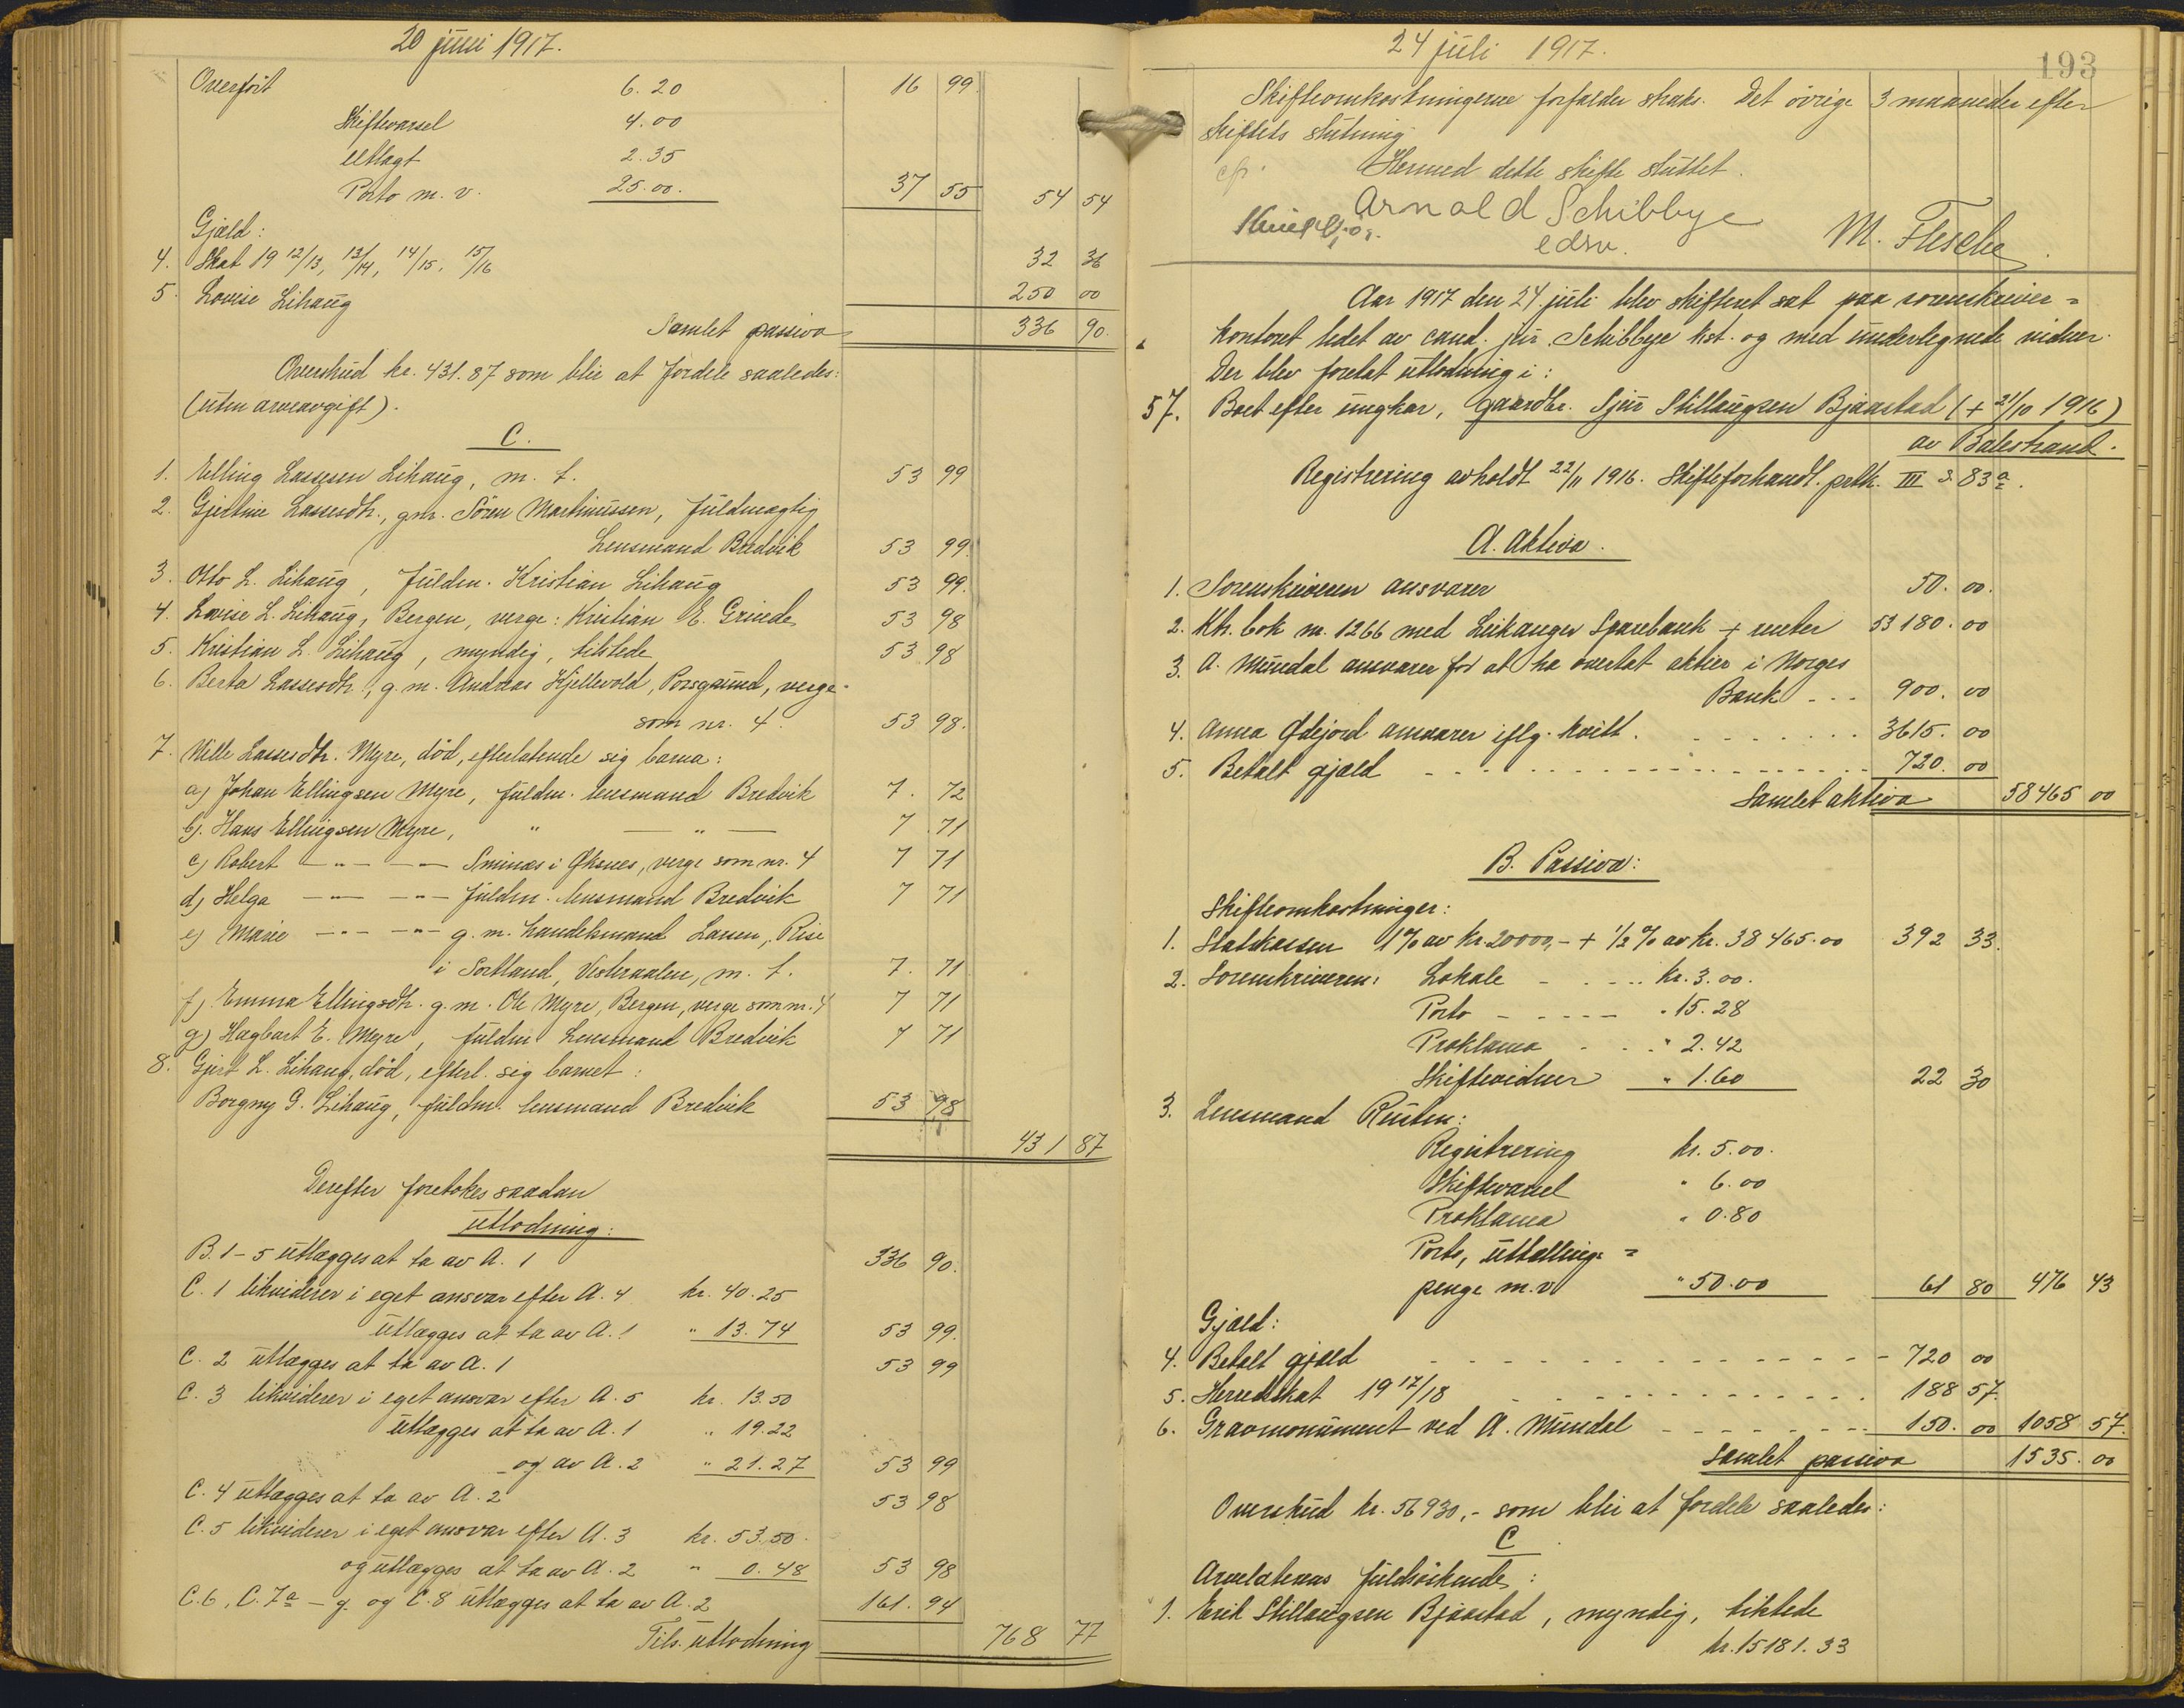 20 juni 1917.
Overført 6.20 16 99.
Skiftevarsel 4.00
Utlagt 2.35
Porto m. v. 25.00. 37 55 54 54
Gjæld:
4. Skat 19 12/13, 13/14, 14/15, 15/16 32 36
5. Lovise Lihaug 250 00
Samlet passiva 336 90.
Overskud kr. 431.87 som blir at fordele saaledes:
(uten arveavgift).
C.
1. Elling Lassesen Lihaug, m. t. 53 99
2. Gjertine Lassesdtr., gm. Sören Martinussen, fuldmægtig
Lensmand Bredvik 53 99.
3. Otto L. Lihaug, fuldm. Kristian Lihaug 53 99.
4. Lovise L. Lihaug, Bergen, verge: Kristian E. Grinde 53 98
5. Kristian L. Lihaug, myndig, tilstede 53 98
6. Berta Lassesdtr., g. m. Andreas Kjellevold, Porsgrund, verge
som nr. 4. 53 98.
7. Nille Lassesdtr. Myre, död, efterlatende sig barna:
a) Johan Ellingsen Myre, fuldm. lensmand Bredvik 7. 72
b). Hans Ellingsen Myre, " — " — 7 71
c) Robert — " — — " — Sminæs i Øksnes, verge som nr. 4 7 71
d) Helga — " — — " — fuldm. lensmand Bredvik 7 71
e) Marie — " — — " — g. m. handelsmand Larsen, Rise
i Sortland, Vesteraalen, m. t. 7. 71
f). Emma Ellingsdtr. g. m. Ole Myre, Bergen, verge som nr. 4 7 71
g) Hagbart E. Myre, fuldm. Lensmand Bredvik 7 71
8. Gjert L. Lihaug, död, efterl. sig barnet:
Borgny G. Lihaug, fuldm. lensmand Bredvik 53 98
431 87
Derefter foretokes saadan
utlodning:
B. 1 – 5 utlægges at ta av A. 1 336 90.
C. 1 likviderer i eget ansvar efter A. 4 kr. 40.25
utlægges at ta av A. 1 " 13.74 53 99.
C. 2 utlægges at ta av A. 1 53 99
C. 3 likviderer i eget ansvar efter A. 5 kr. 13.50
utlægges at ta av A. 1 " 19.22
og av A. 2 " 21.27 53 99
C. 4 utlægges at ta av A. 2 53 98
C. 5 likviderer i eget ansvar efter A. 3 kr. 53.50.
og utlægges at ta av A. 2 " 0.48 53 98
C. 6, C. 7a – g. og C. 8 utlægges at ta av A. 2 161. 94
Tils. utlodning 768 77
24 juli 1917.
193
Skifteomkostningerne forfalder straks. Det övrige 3 maaneder efter
skiftets slutning.
Hermed dette skifte sluttet.
Arnold Schibbye
edsv. M. Flesche
Aar 1917 den 24 juli blev skifteret sat paa sorenskriver=
kontoret ledet av cand. jur. Schibbye kst. og med undertegnede vidner.
Der blev foretat utlodning i:
57. Boet efter ungkar, gaardbr. Sjur Stillaugsen Bjaastad (+ 21/10 1916)
av Balestrand.
Registrering avholdt 22/11 1916. Skifteforhandl. prtk. III s. 83a.
A. Aktiva.
1. Sorenskriveren ansvarer 50. 00.
2. Ktr. bok nr. 1266 med Leikanger Sparebank + renter 53180. 00
3. A. Mundal ansvarer for at ha overtat aktier i Norges
Bank - - - 900. 00
4. Anna Ødejord ansvarer iflg. kvitt. - - - - - - - 3615. 00
5. Betalt gjæld - - - - - - - - - - - - - 720. 00
Samlet aktiva 58465 00
B. Passiva:
Skifteomkostninger:
1. Statskassen 1% av kr. 20000,– + 1/2 % av kr. 38465.00 392 33.
2. Sorenskriveren: Lokale - - - - kr. 3.00.
Porto - - - - - " 15.28
Proklama - - - " 2.42
Skiftevidner " 1.60 22 30
3. Lensmand Rusten:
Registrering kr. 5.00.
Skiftevarsel " 6.00
Proklama " 0.80
Porto, uttællings=
penge m.v. " 50.00 61 80 476 43
Gjæld:
4. Betalt gjæld - - - - - - - - - - - - - 720 00
5. Herredskat 19 17/18 - - - - - - - - - - 188 57.
6. Gravmonument ved A. Mundal - - - - - - - 150. 00 1058 57.
Samlet passiva 1535. 00
Overskud kr. 56930,- som blir at fordele saaledes:
C
Arvelaterens fuldsöskende:
1. Erik Stillaugsen Bjaastad, myndig, tilstede
kr. 15181.33